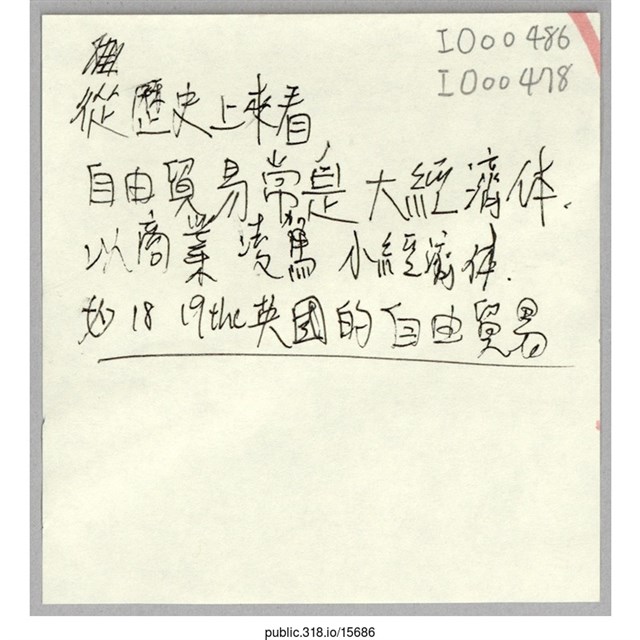 I000486
I000478
從歷史上來看
自由貿易常是大經濟体.
以商業凌駕小經濟体.
如 18 19the英國的自由貿易
public.318.io/15686